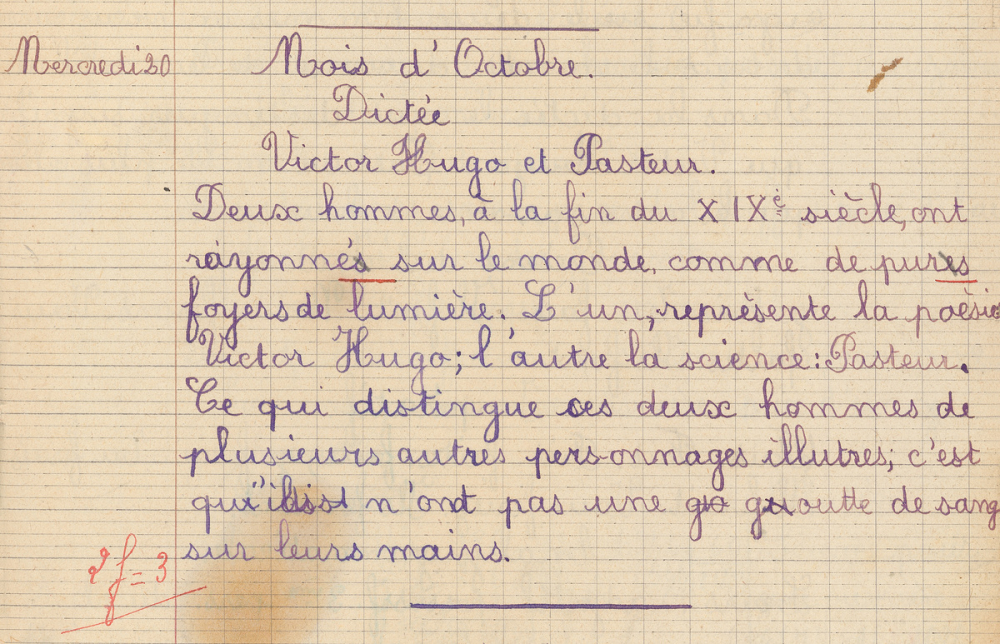 Mercredi 30 Mois d'Octobre.
Dictée
Victor Hugo et Pasteur.
Deux hommes, à la fin du XIXè siècle, ont
rayonnés sur le monde, comme de purs
foyers de lumière. L'un, représente la poèsie
Victor Hugo; l'autre la science: Pasteur.
Ce qui distingue ces deux hommes de
plusieurs autres personnages illutres; c'est
qu'ils n'ont pas une goutte de sang
sur leurs mains.
2 f = 3